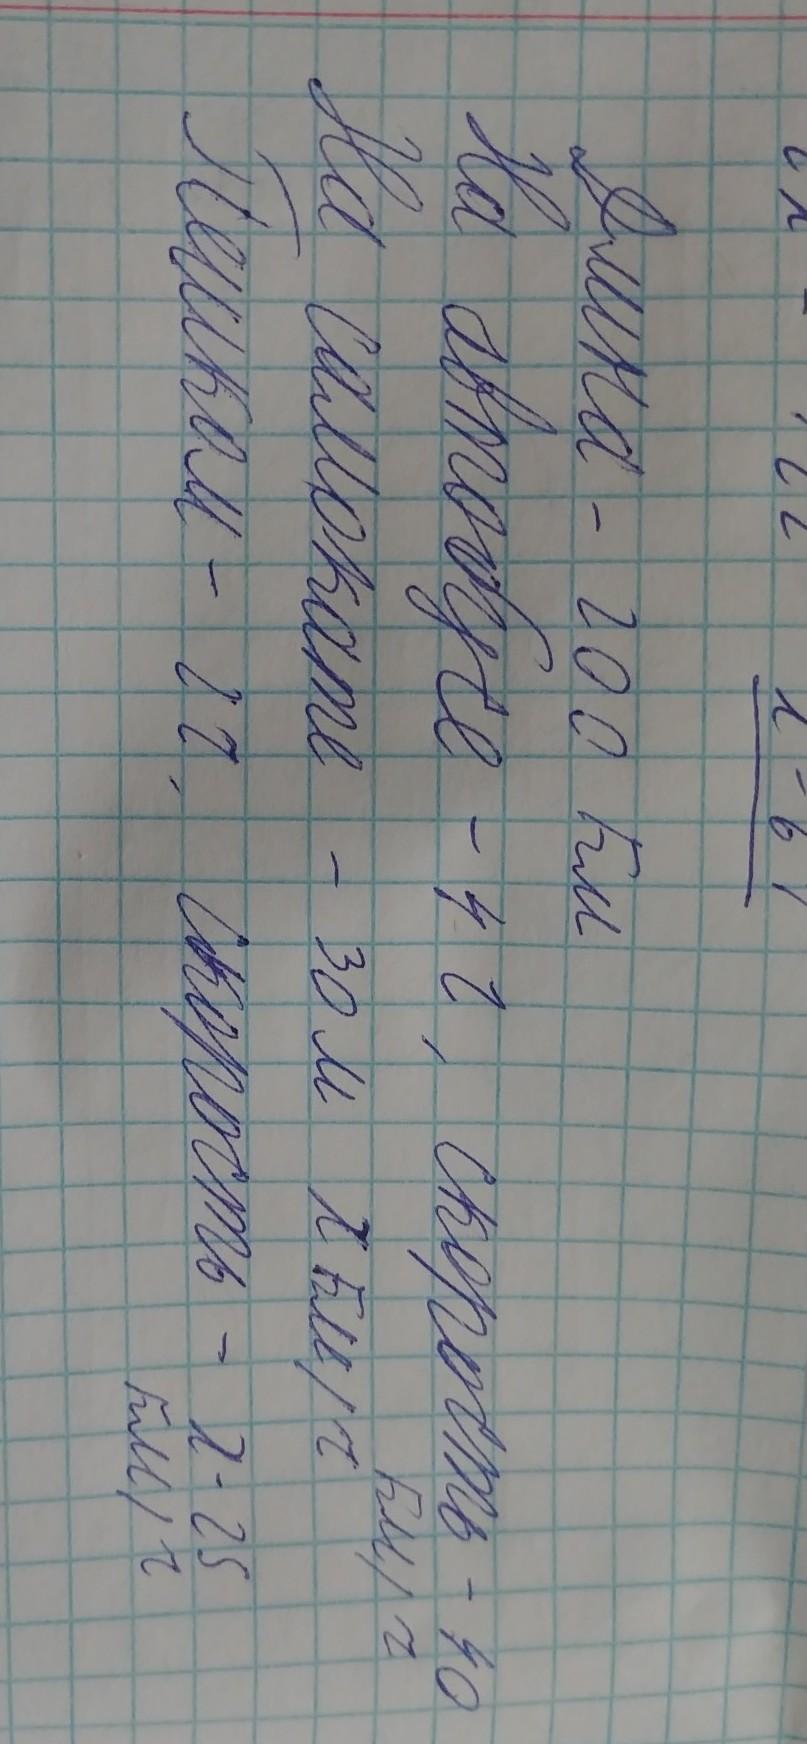 Длина - 200 км
На автобусе - 4 ч, скорость - 40
км/ч
На самокате - 30 м х км/ч
Пешком - 2 ч, скорость - х-25
км/ч